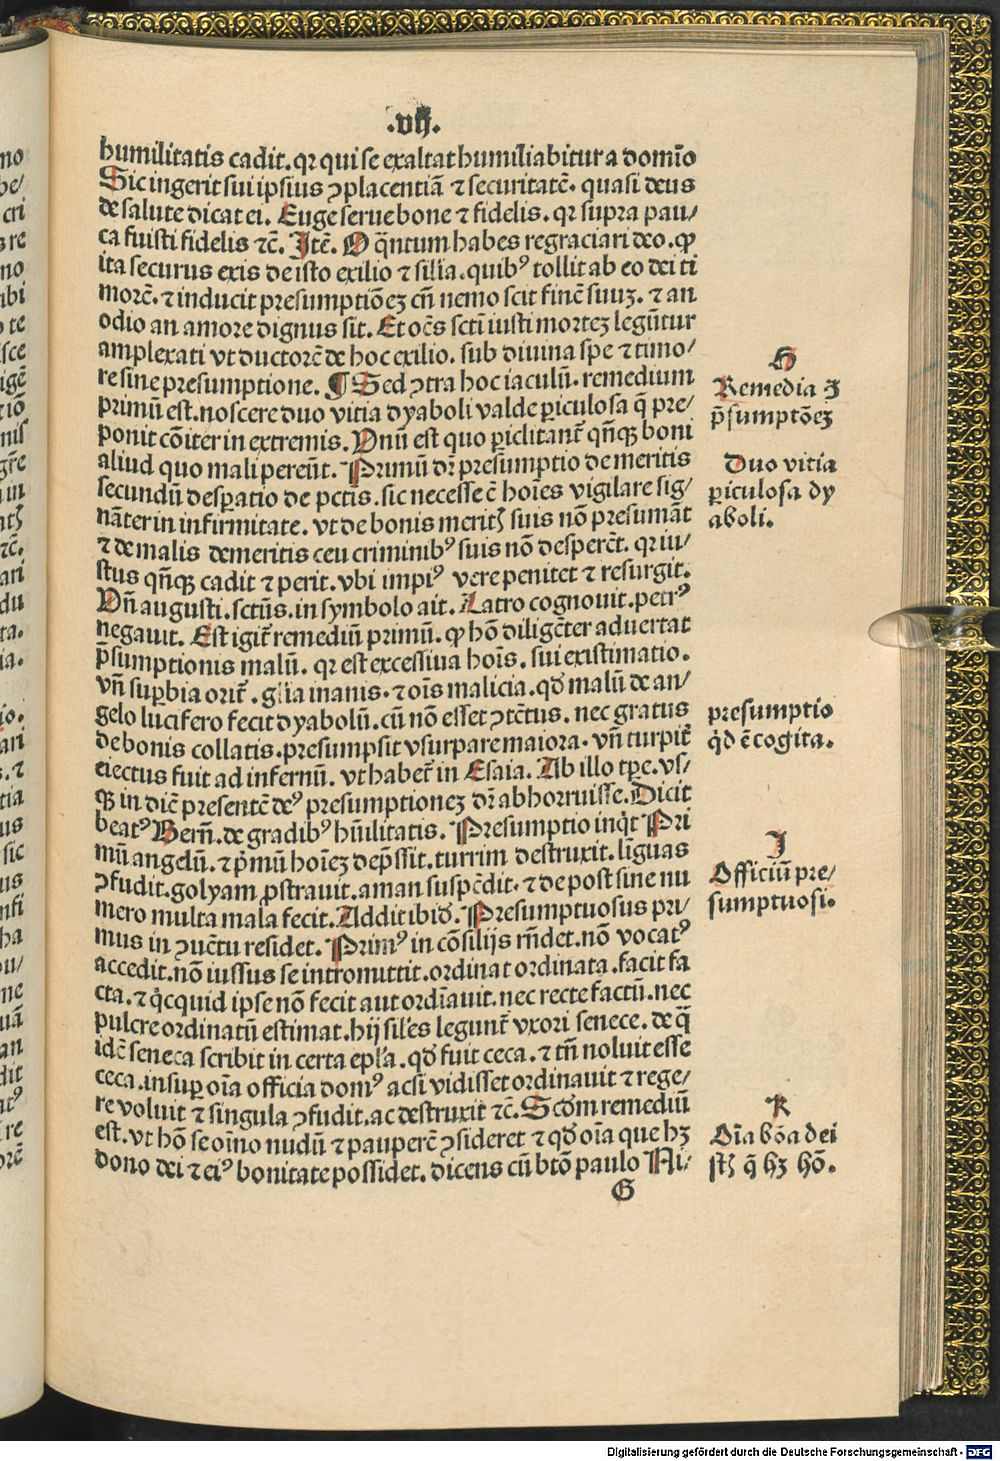 .vij.
humilitatis cadit. qꝛ qui se exaltat humiliabitur a domīo
Sic ingerit sui ipsius ꝯplacentiā ⁊ securitatē. quasi deus
de salute dicat ei. Euge serue bone ⁊ fidelis. qꝛ supra pau/
ca fuisti fidelis ⁊cē. Itē. O q̄ntum habes regraciari deo. ꝙ
ita securus exis de isto exilio ⁊ sil'ia. quibꝰ tollit ab eo dei ti
morē. ⁊ inducit presumptiōeꝫ cū nemo scit finē suuꝫ. ⁊ an
odio an amore dignus sit. Et oēs scti iusti morteꝫ legūtur
amplexati vt ductorē de hoc exilio. sub diuina spe ⁊ timo/
re sine presumptione. ¶ Sed ꝯtra hoc iaculū. remedium
primū est. noscere duo vitia dyaboli valde ꝑiculosa q̄ pre/
ponit cōiter in extremis. Vnū est quo ꝑiclitant̄ qn̄qꝫ boni
aliud quo mali pereūt. Primū dr̄ presumptio de meritis
secundū desꝑatio de pctis. sic necesse ē hoīes vigilare sig/
nāter in infirmitate. vt de bonis meritꝭ suis nō presumāt
⁊ de malis demeritis ceu criminibꝰ suis nō desperēt. qꝛ iu/
stus qn̄qꝫ cadit ⁊ perit. vbi impiꝰ vere penitet ⁊ resurgit.
Vn̄ augusti. sctūs. in symbolo ait. Latro cognouit. petrꝰ
negauit. Est igit̄ remediū primū. ꝙ hō diligēter aduertat
p̄sumptionis malū. qꝛ est excessiua hoīs. sui existimatio.
vn̄ suꝑbia orit̄. gl'ia inanis. ⁊ oīs malicia. qd' malū de an/
gelo lucifero fecit dyabolū. cū nō esset ꝯtētus. nec gratus
de bonis collatis. presumpsit vsurpare maiora. vn̄ turpit̄
eiectus fuit ad infernū. vt habet̄ in Esaia. Ab illo tꝑe. vs/
qꝫ in diē presentē deꝰ presumptioneꝫ dr̄ abhorruisse. Dicit
beatꝰ Bern̄. de gradibꝰ hūilitatis. Presumptio inqt Pri
mū angelū. ⁊ p̄mū hoīeꝫ dep̄ssit. turrim destruxit. liguas
ꝯfudit. golyam ꝓstrauit. aman suspēdit. ⁊ de post sine nu
mero multa mala fecit. Addit ibid'. Presumptuosus pri/
mus in ꝯuētu residet. Primꝰ in cōsilijs rn̄det. nō vocatꝰ
accedit. nō iussus se intromittit. ordinat ordinata. facit fa
cta. ⁊ qcquid ipse nō fecit aut ordīauit. nec recte factū. nec
pulcre ordinatū estimat. hij sil'es legunt̄ vxori senece. de q̄
idē seneca scribit in certa epl'a. qd' fuit ceca. ⁊ tn̄ noluit esse
ceca. insuꝑ oīa officia domꝰ acsi vidisset ordinauit ⁊ rege/
re voluit ⁊ singula ꝯfudit. ac destruxit ⁊cē. Scdm remediū
est. vt hō se oīno nudū ⁊ pauperē ꝯsideret ⁊ qd' oīa que hꝫ
dono dei ⁊ eiꝰ bonitate possidet. dicens cū btō paulo Ni/
G
H
Remedia ꝯ
p̄sumptōeꝫ
Duo vitia
ꝑiculosa dy
aboli.
presumptio
qd ē cogita.
I
Officiū pre/
sumptuosi.
K
Oīa bōa dei
stꝭ q̄ hꝫ hō.
Digitalisierung gefördert durch die Deutsche Forschungsgemeinschaft - DFG